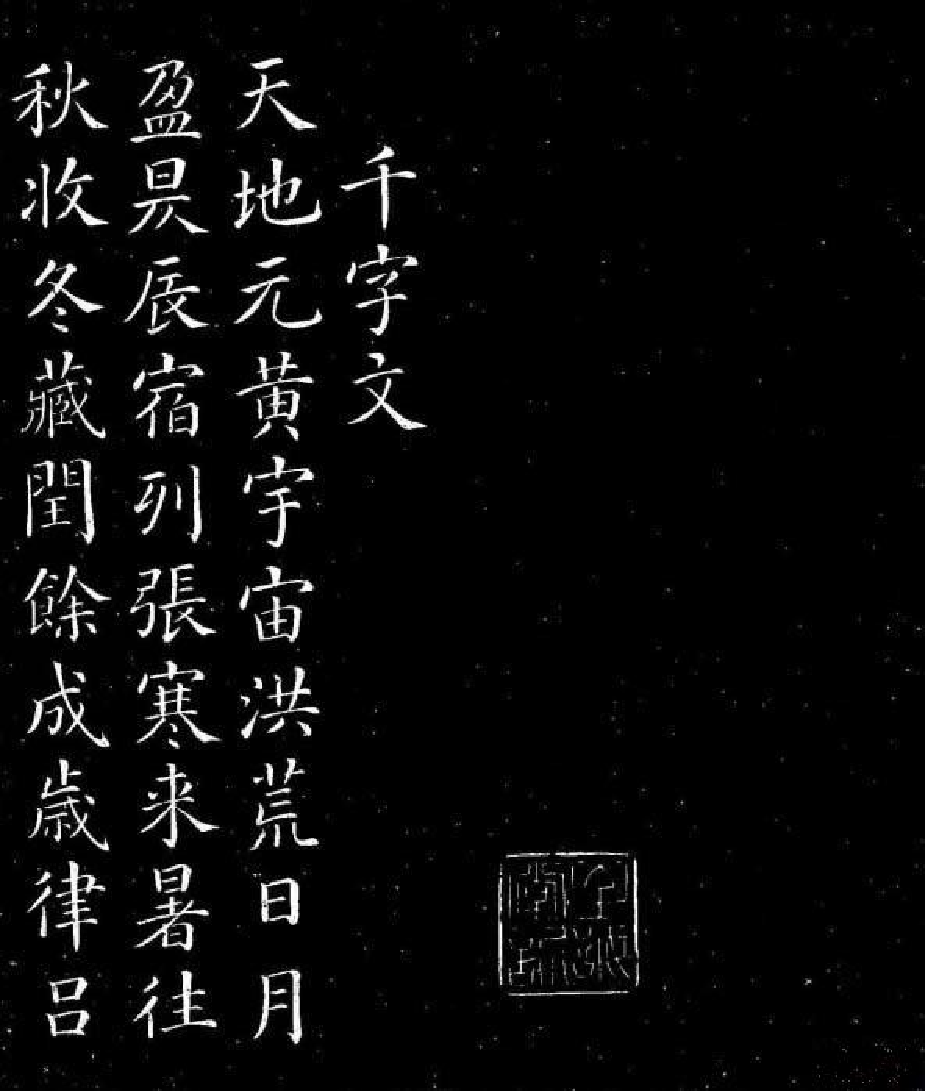 千字文
天地元黃宇宙洪荒日月
盈昃辰宿列張寒来暑往
秋收冬藏閏餘成歲律呂